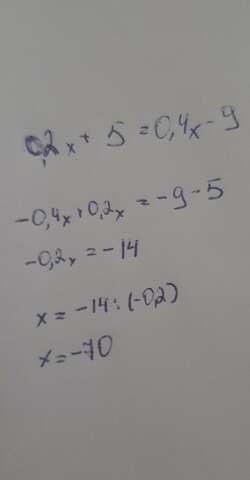 0,2x + 5 = 0,4x - 9
-0,4x + 0,2x = -9 - 5
-0,2x = -14
x = -14 : (-0,2)
x = -70